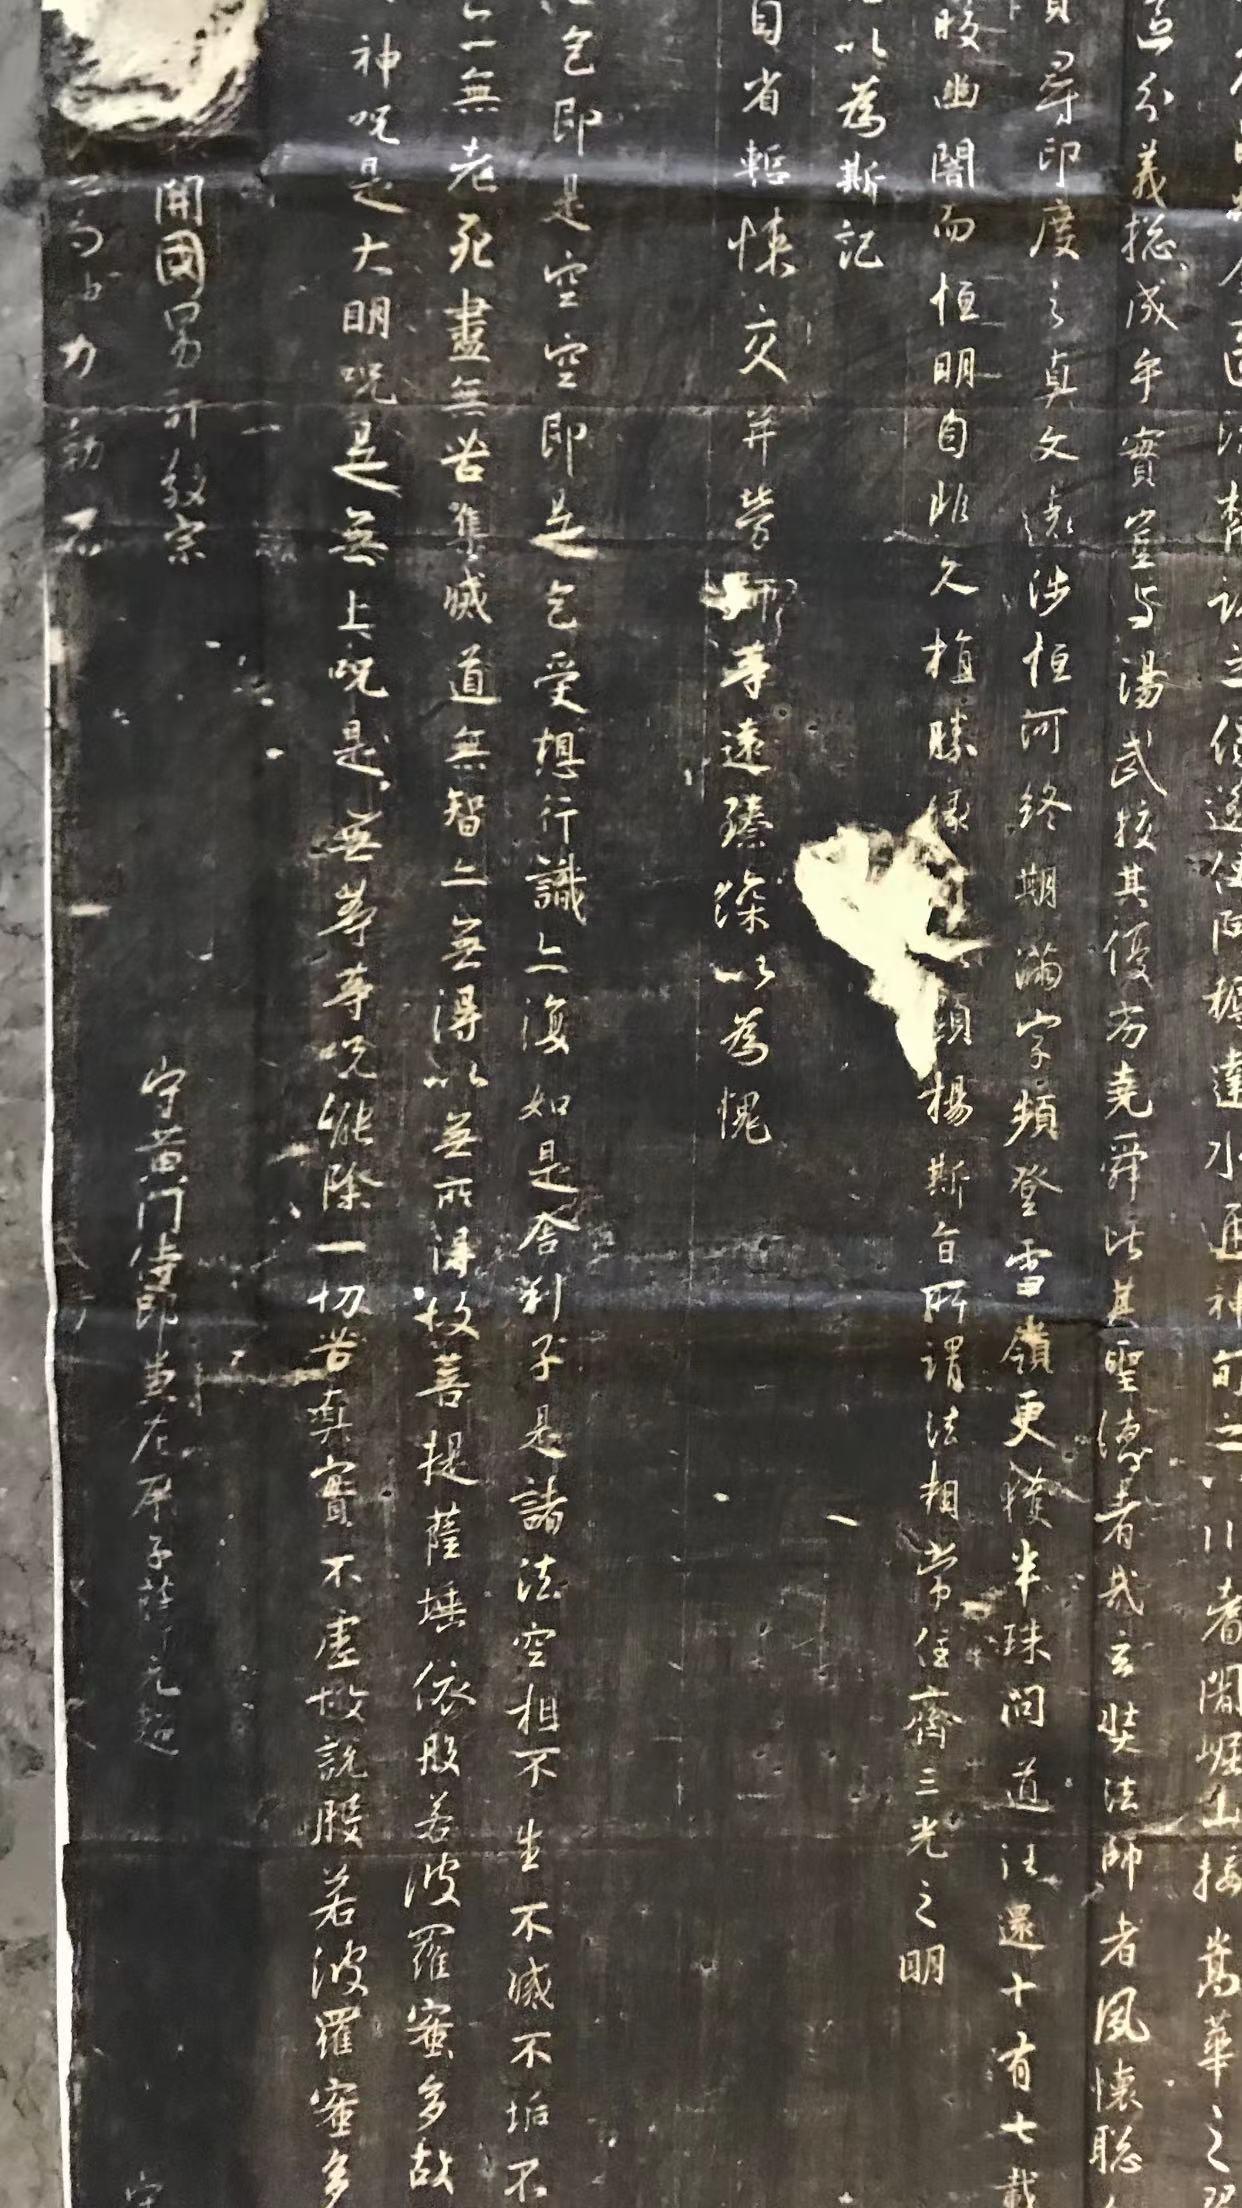 遂使阿耨達水通神甸之八川耆闍崛山接嵩華之
區分義摠成乎實豈與湯武校其優劣堯舜比其聖德者哉玄奘法師者夙懷聰
尋印度之真文遠涉恒河終期滿字頻登雪嶺更獲半珠問道往還十有七載
皎幽闇而恒明自非久植勝緣顯揚斯旨所謂法相常住齊三光之明
以為斯記
自省慙悚交并勞師等遠臻深以為愧
色即是空空即是色受想行識亦復如是舍利子是諸法空相不生不滅不垢不
亦無老死盡無苦集滅道無智亦無得以無所得故菩提薩埵依般若波羅蜜多故
神呪是大明呪是無上呪是無等等呪能除一切苦真實不虛故說般若波羅蜜多
開國男許敬宗 守黃門侍郎兼左庶子薛元超 守
勒石